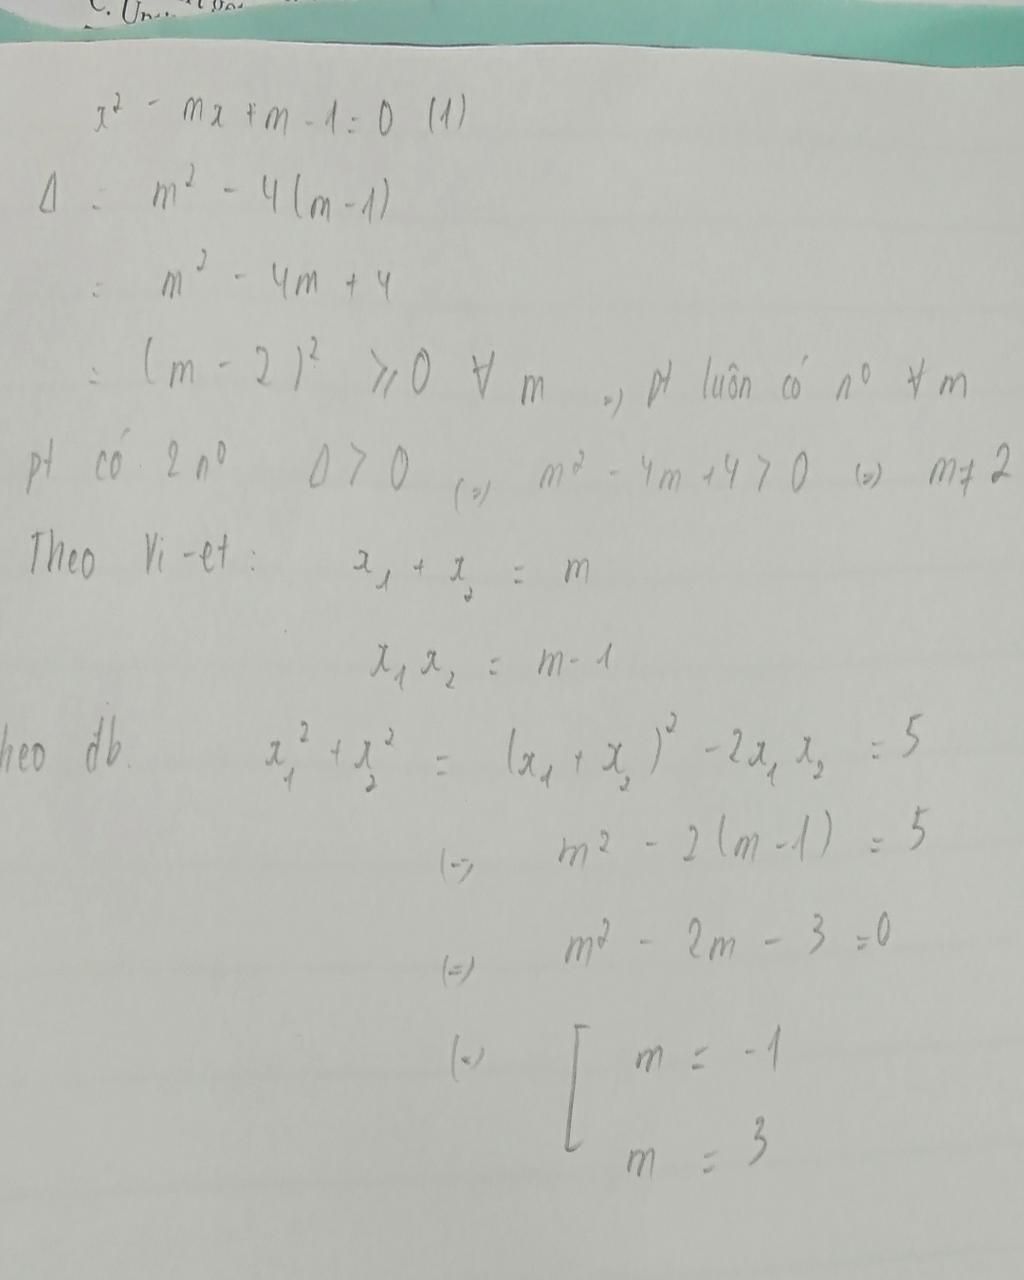 x² - mx + m - 1 = 0 (1)
Δ = m² - 4(m - 1)
= m² - 4m + 4
= (m - 2)² ≥ 0 ∀ m => pt luôn có n⁰ ∀ m
pt có 2 n⁰ Δ > 0 (=) m² - 4m + 4 > 0 (=) m ≠ 2
Theo Vi-et: x₁ + x₂ = m
x₁ x₂ = m - 1
heo đb. x₁² + x₂² = (x₁ + x₂)² - 2x₁ x₂ = 5
(=) m² - 2(m - 1) = 5
(=) m² - 2m - 3 = 0
(=) [ m = -1
m = 3